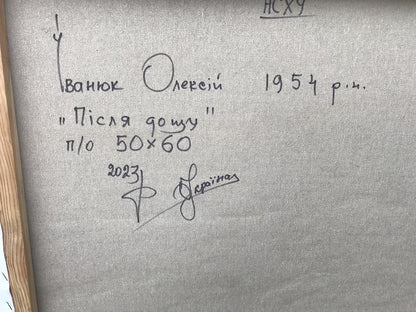 НСХУ
Іванюк Олексій 1954 р.н.
"Після дощу"
п/о 50×60
2023 Україна